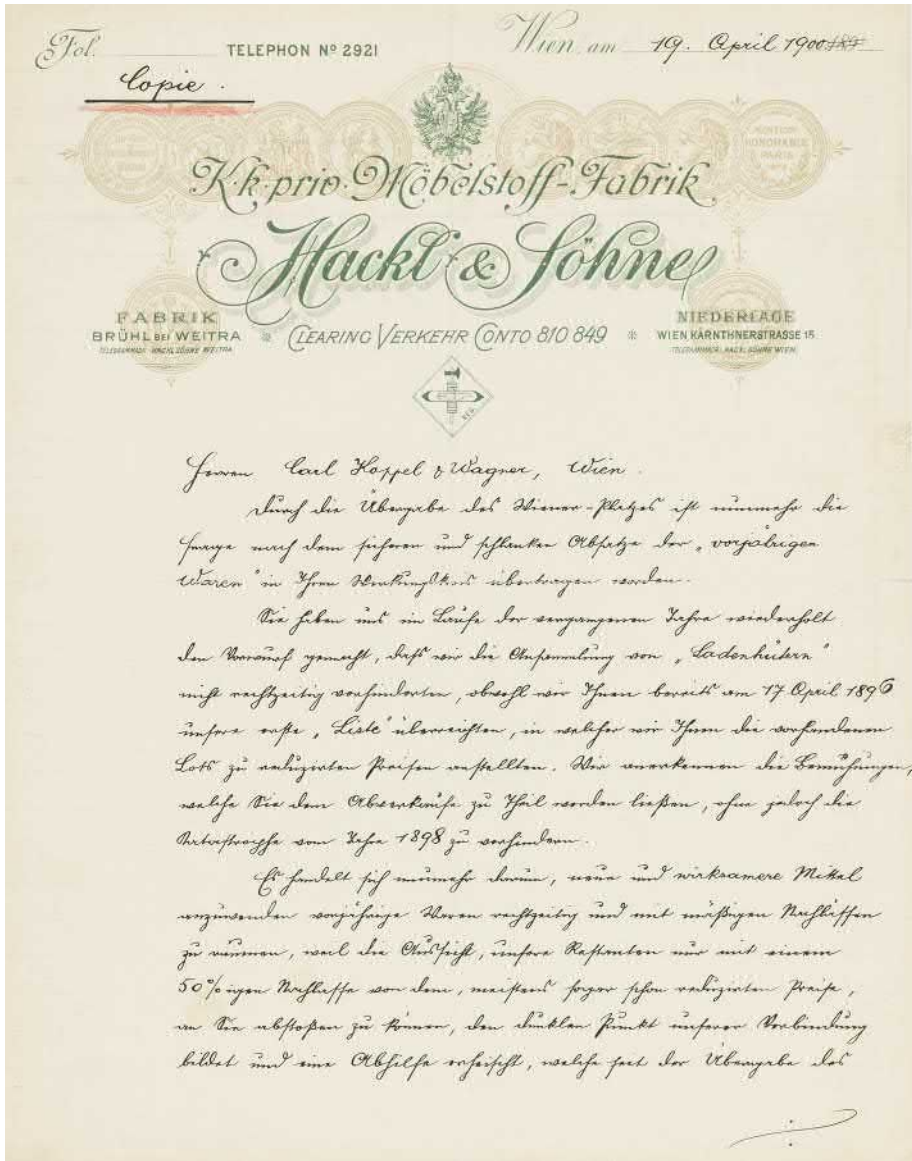 Fol.
TELEPHON Nº 2921
Wien, am 19. April 1900 189
Copie.
MENTION HONORABLE PARIS
K.k. priv. Möbelstoff-Fabrik
Hackl & Söhne
FABRIK
BRÜHL BEI WEITRA
TELEGRAMMADR. HACKL SÖHNE WEITRA
CLEARING VERKEHR CONTO 810 849
NIEDERLAGE
WIEN KÄRNTHNERSTRASSE 15
TELEGRAMMADR. HACKL SÖHNE WIEN
REG.
Herren Carl Koppel & Wagner, Wien.
Durch die Übergabe des Wiener-Platzes ist nunmehr die
Frage nach dem sicheren und schlanken Absatze der „vorjährigen
Waren" in Ihren Wirkungskreis übertragen worden.
Sie haben uns im Laufe der vergangenen Jahre wiederholt
den Vorwurf gemacht, daß wir die Ansammlung von „Ladenhütern"
nicht rechtzeitig verhinderten, obwohl wir Ihnen bereits am 17 April 1896
unsere erste „Liste" überreichten, in welcher wir Ihnen die vorhandenen
Lots zu reduzirten Preisen anstellten. Wir anerkennen die Bemühungen,
welche Sie dem Abverkaufe zu Theil werden ließen, ohne jedoch die
Katastrophe vom Jahre 1898 zu verhindern.
Es handelt sich nunmehr darum, neue und wirksamere Mittel
anzuwenden vorjährige Waren rechtzeitig und mit mäßigen Nachlässen
zu räumen, weil die Aussicht, unsere Restanten nur mit einem
50%igen Nachlasse von dem, meistens sogar schon reduzirten Preise,
an Sie abstoßen zu können, den dunklen Punkt unserer Verbindung
bildet und eine Abhilfe erheischt, welche seit der Übergabe des